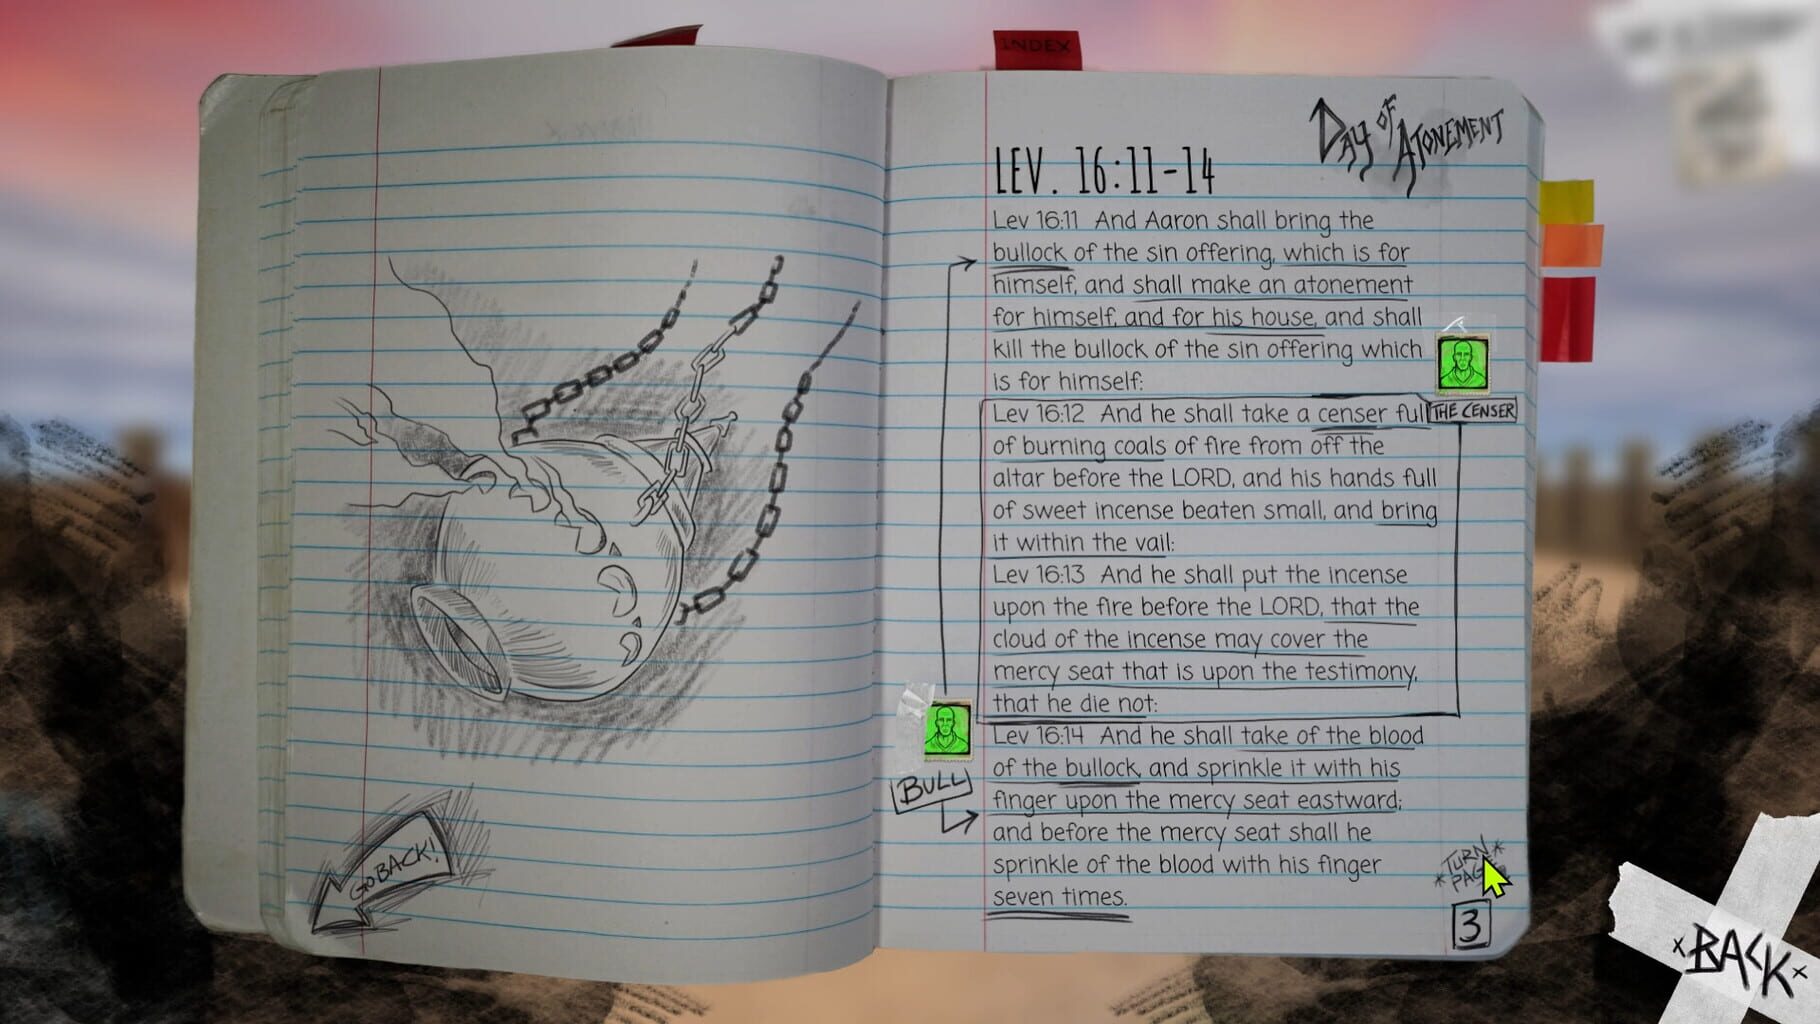 INDEX
DAY OF ATONEMENT
LEV. 16:11-14
Lev 16:11 And Aaron shall bring the
bullock of the sin offering, which is for
himself, and shall make an atonement
for himself, and for his house, and shall
kill the bullock of the sin offering which
is for himself:
Lev 16:12 And he shall take a censer full
THE CENSER
of burning coals of fire from off the
altar before the LORD, and his hands full
of sweet incense beaten small, and bring
it within the vail:
Lev 16:13 And he shall put the incense
upon the fire before the LORD, that the
cloud of the incense may cover the
mercy seat that is upon the testimony,
that he die not:
Lev 16:14 And he shall take of the blood
of the bullock, and sprinkle it with his
finger upon the mercy seat eastward;
and before the mercy seat shall he
sprinkle of the blood with his finger
seven times.
BULL
GO BACK!
*TURN*
3
BACK